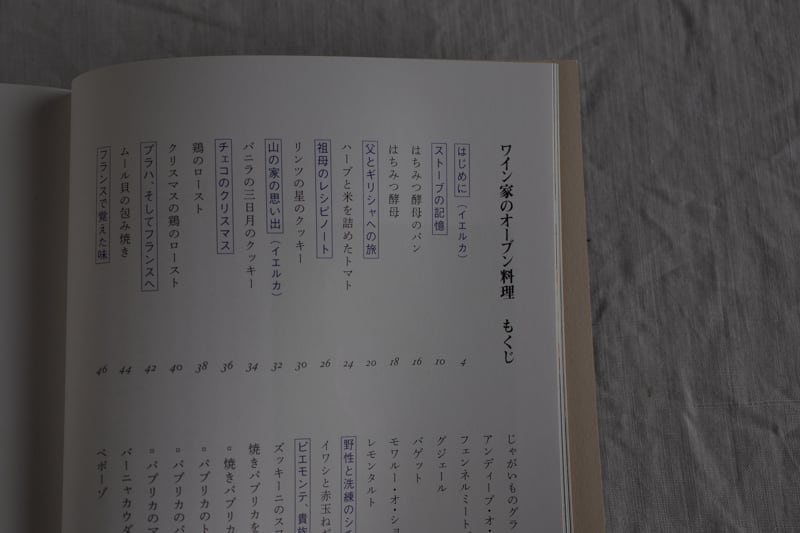 ワイン家のオーブン料理 もくじ
はじめに（イエルカ） 4
ストーブの記憶 10
はちみつ酵母のパン 16
はちみつ酵母 18
父とギリシャへの旅 20
ハーブと米を詰めたトマト 24
祖母のレシピノート 26
リンツの星のクッキー 30
山の家の思い出（イエルカ） 32
バニラの三日月のクッキー 34
チェコのクリスマス 36
鶏のロースト 38
クリスマスの鶏のロースト 40
プラハ、そしてフランスへ 42
ムール貝の包み焼き 44
フランスで覚えた味 46
じゃがいものグラ
アンディーブ・オ・
フェンネルミート
グジェール
バゲット
モワルー・オ・ショ
レモンタルト
野性と洗練のシチ
イワシと赤玉ねぎ
ピエモンテ、貴族
ズッキーニのスフ
焼きパプリカを
焼きパプリカ
パプリカのト
パプリカのパ
パプリカのマ
バーニャカウダ
ペポーゾ